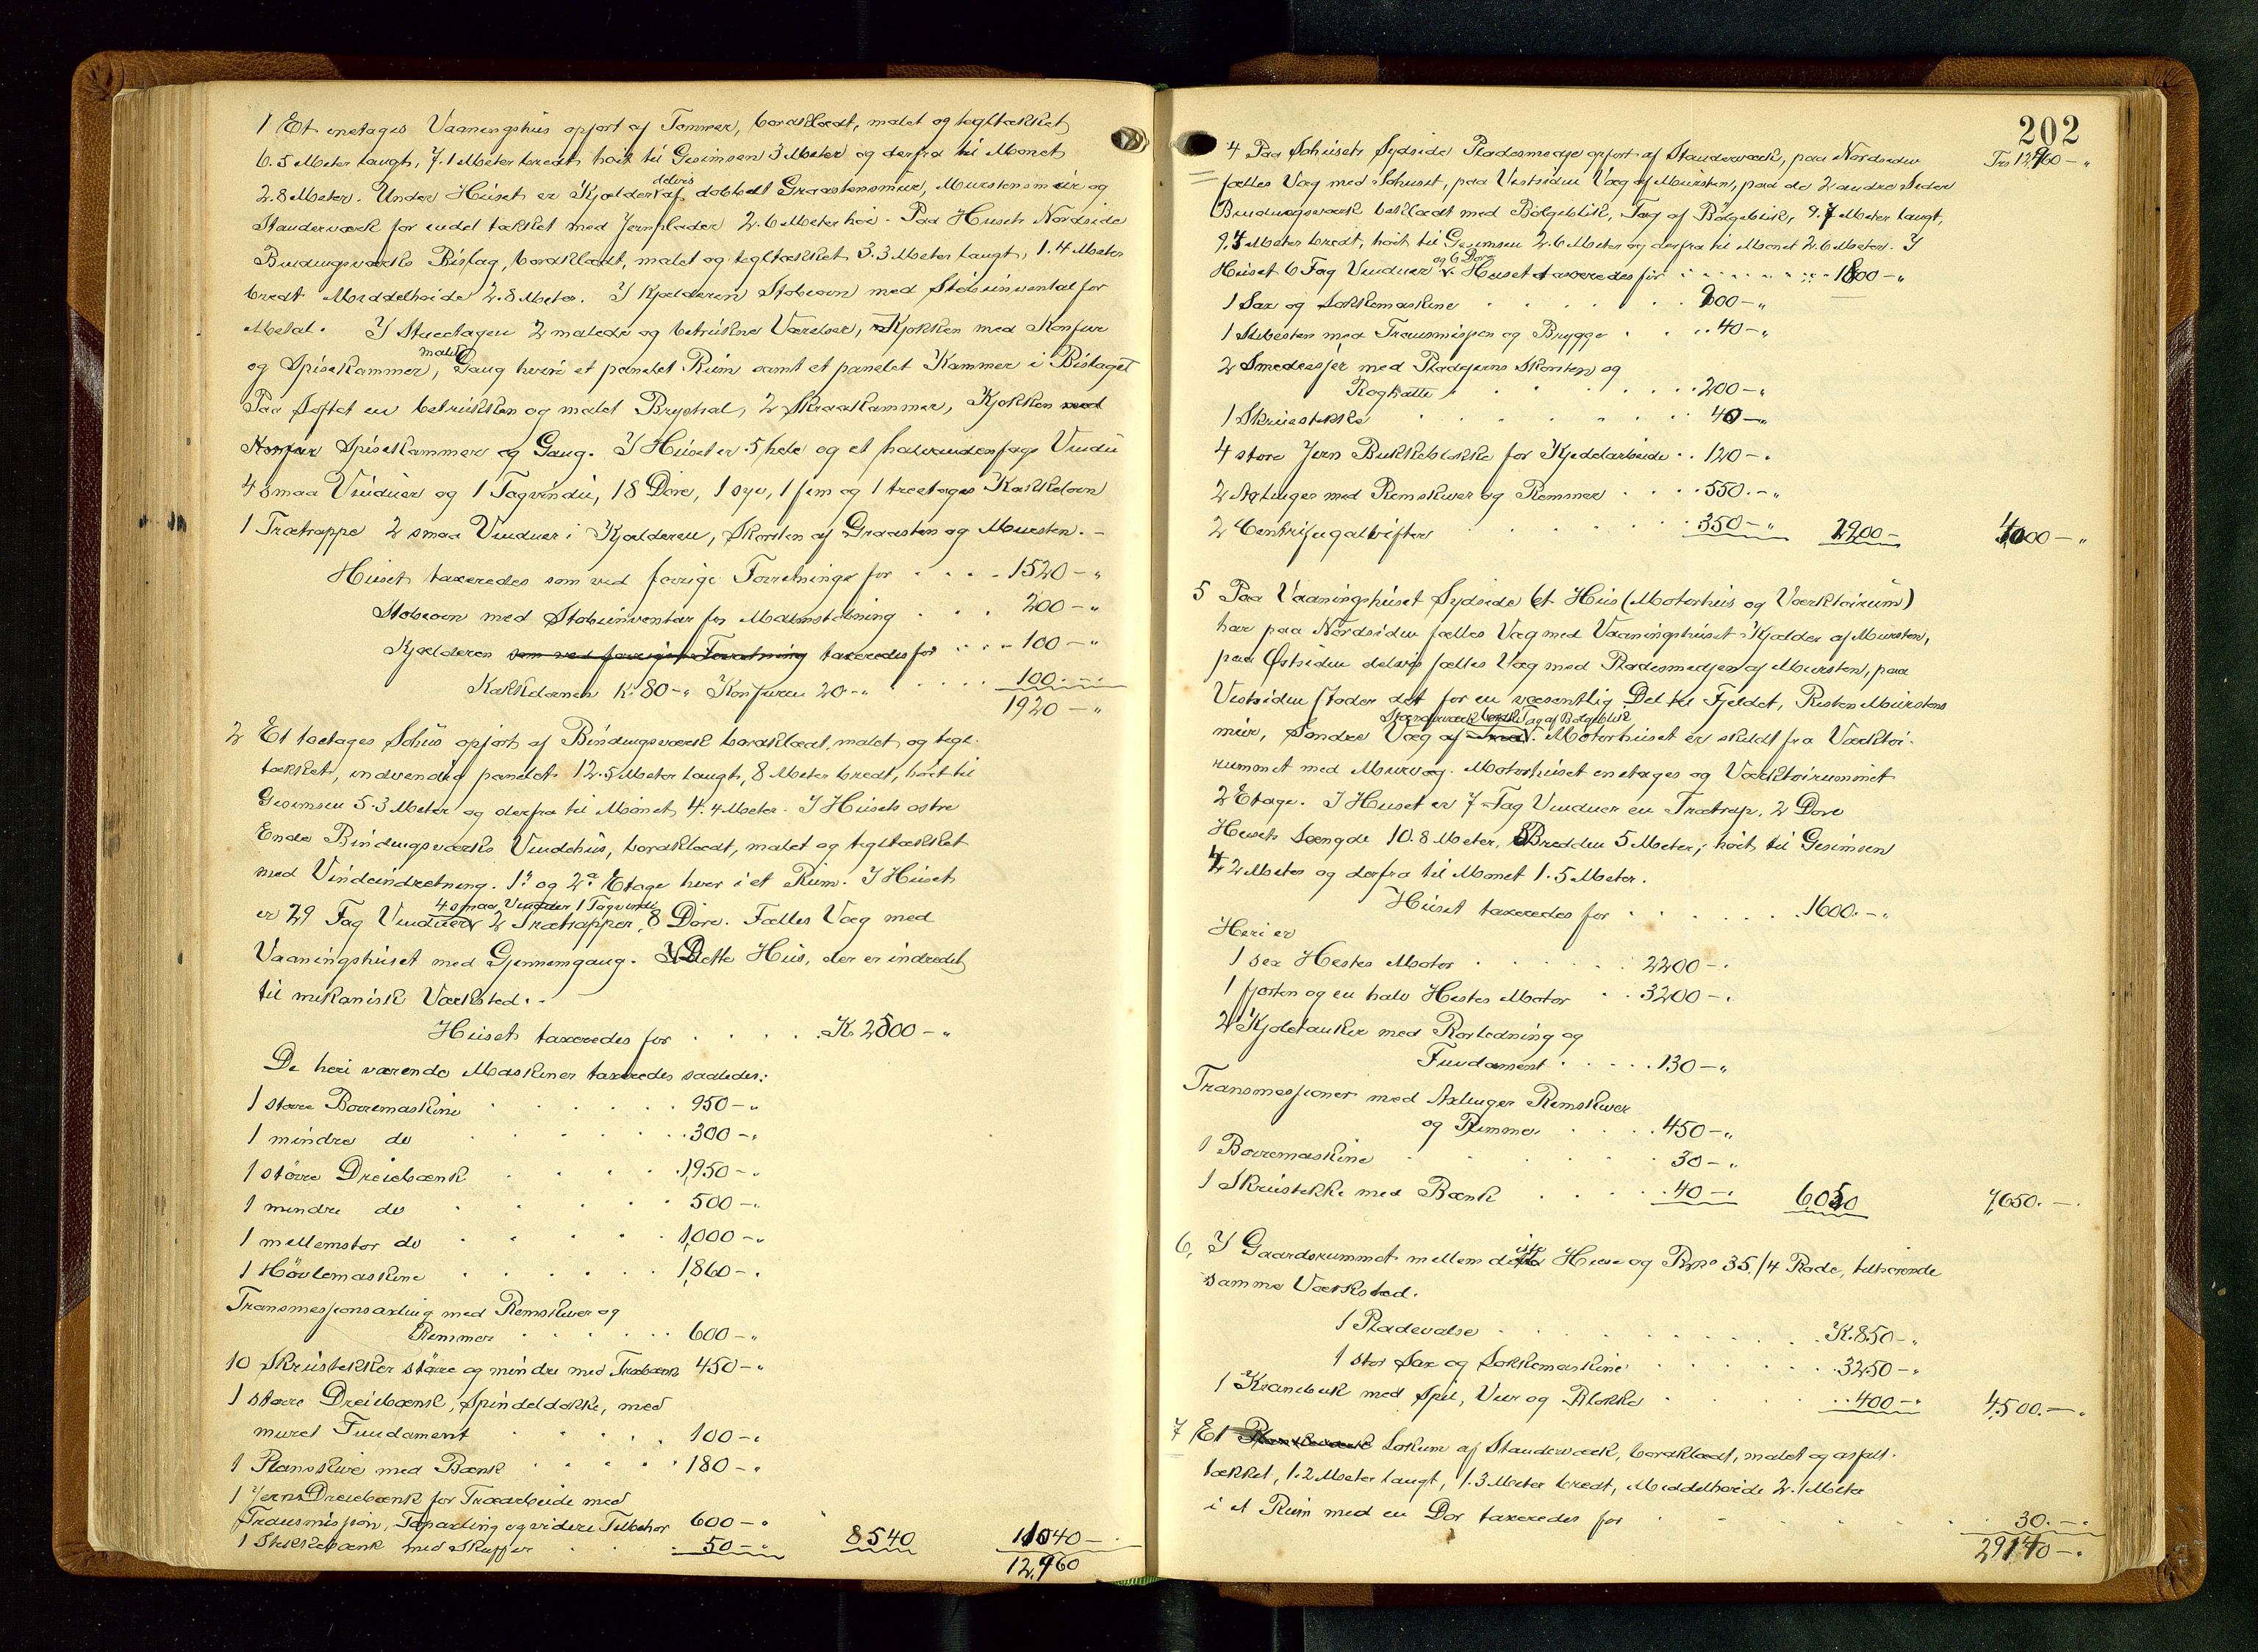 1 Et enetages Vaaningshus opført af Tømmer, bordklædt, malet og tegltækket
6.5 Meter langt, 7.1 Meter bredt høit til Gesimsen 3 Meter og derfra til Mønet
2.8 Meter. Under Huset er Kjælder delvis af dobbelt Graastensmur, Murstensmur og
Standerværk for endel tækket med Jernplader 2.6 Meter høi. Paa Husets Nordside
Bindingsværks Bislag, bordklædt, malet og tegltækket 3.3 Meter langt, 1.4 Meter
bredt Middelhøide 2.8 Meter. I Kjælderen Støbeovn med Støbeinventar for
Metal. I Stueetagen 2 malede og betrukne Værelser, Kjøkken med Komfur
og Spisekammer, malet Gang hvori et panelet Rum samt et panelet Kammer i Bislaget
Paa Loftet en betrukken og malet Brystsal, 2 Skraakammer, Kjøkken med
Komfur Spisekammer og Gang. I Huset er 5 hele og et halvandenfags Vindu
4 smaa Vinduer og 1 Tagvindu, 18 Døre, 1 syv, 1 fem og 1 treetages Kakkelovn
1 Trætrappe 2 smaa Vinduer i Kjælderen, Skorsten af Graasten og Mursten. -
Huset taxeredes som ved forrige Forretninge for . . . . 1520 - "
Støbeovn med Støbeinventar for Malmstøbning . . . 200 - "
Kjælderen som ved forrige Forretning taxeredes for . . . 100 - "
Kakkelovnen K. 80 - " Komfuren 20 - " . . . . 100. - "
1920 - "
2 Et toetages Søhus opført af Bindingsværk bordklædt, malet og tegl-
tækket, indvendig panelet 12.5 Meter langt, 8 Meter bredt, høit til
Gesimsen 5.3 Meter og derfra til Mønet 4.4 Meter. I Husets østre
Ende Bindingsværks Vindehus, bordklædt, malet og tegltækket
med Vindeindretning. 1ste og 2den Etage hver i et Rum. I Huset
er 29 Fag Vinduer 4 smaa Vinduer 1 Tagvindu 2 Trætrapper, 8 Døre. Fælles Væg med
Vaaningshuset med Gjennemgang. Dette Hus, der er indredet
til mekanisk Værksted. -
Huset taxeredes for . . . . K. 2500 - "
De heri værende Maskiner taxeredes saaledes:
1 større Borremaskine . . . . 950 - "
1 mindre do . . . . 300 - "
1 større Dreiebænk . . . . 1,950 - "
1 mindre do . . . . 500 - "
1 mellemstor do . . . . 1,000 - "
1 Høvlemaskine . . . . 1,860 - "
Transmissionsaxling med Remskiver og
Remmer . . . . 600 - "
10 Skruestikker større og mindre med Træbænk 450 - "
1 større Dreiebænk, Spindeldokke, med
muret Fundament . . . . 100 - "
1 Planskive med Bænk . . . . 180 - "
1 Jern Dreiebænk for Træarbeide med
Transmission, Tapaxling og videre Tilbehør 600 - "
1 Stikkebænk med Skuffer . . 50 - " 8540 11040 -
12,960
202
4 Paa Søhusets Sydside Pladesmedje opført af Standerværk, paa Nordsiden Trs 12,960 - "
fælles Væg med Søhuset, paa Vestsiden Væg af Mursten, paa de 2 andre Sider
Bindingsværk beklædt med Bølgeblik, Tag af Bølgeblik, 9.7 Meter langt,
9.4 Meter bredt, høit til Gesimsen 2.6 Meter og derfra til Mønet 2.6 Meter. I
Huset 6 Fag Vinduer og 6 Døre. Huset taxeredes for . . . . 1800 - "
1 Sax og Lokkemaskine . . . . 900 - "
1 Slibesten med Transmission og Brygge . . . 40 - "
2 Smedeesjer med Pladejerns Skorsten og
Røghætte . . . . 200 - "
1 Skruestikke . . . . 40 - "
4 store Jern Bukkeblokke for Kjedelarbeide . . 120 - "
2 Axlinger med Remskiver og Remmer . . . . 550. - "
2 Centrifugalvifter . . . . 350 - " 2200 - 4,000 - "
5 Paa Vaaningshuset Sydside Et Hus (Motorhus og Værktøirum)
har paa Nordsiden fælles Væg med Vaaningshuset Kjælder af Mursten,
paa Østsiden delvis fælles Væg med Pladesmedjen af Mursten, paa
Vestsiden støder det for en væsentlig Del til Fjeldet, Resten Murstens
mur, Søndre Væg af Standerværk bordkl. Tag af Bølgeblik. Motorhuset er skildt fra Værktøi-
rummet med Murvæg. Motorhuset enetages og Værktøirummet
2 Etage. I Huset er 7 Fag Vinduer en Trætrap. 2 Døre
Husets Længde 10.8 Meter, Bredden 5 Meter, høit til Gesimsen
4.2 Meter og derfra til Mønet 1.5 Meter.
Huset taxeredes for . . . . 1600. - "
Heri er
1 sex Hestes Motor . . . . 2200 - "
1 fjorten og en halv Hestes Motor . . 3200 - "
2 Kjøletanker med Rørledning og
Fundament . . . . 130 - "
Transmissioner med Axlinger Remskiver
og Remmer . . . . 450 - "
1 Borremaskine . . . . 30 - "
1 Skruestikke med Bænk . . . . 40 - " 6,050 7,650. - "
6, I Gaardsrummet mellem disse Huse og Br.no 35/4 Rode, tilhørende
samme Værksted.
1 Pladevalse . . . . K. 850 - "
1 stor Sax og Lokkemaskine . . . . 3250 - "
1 Kranbuk med Spil, Vier og Blokke . . . . 400 - " 4,500. - "
7 Et Lokum af Standerværk, bordklædt, malet og asfalt-
tækket, 1.2 Meter langt, 1.3 Meter bredt, Middelhøide 2.1 Meter
i et Rum med en Dør taxeredes for . . . . 30. - "
29140 - "